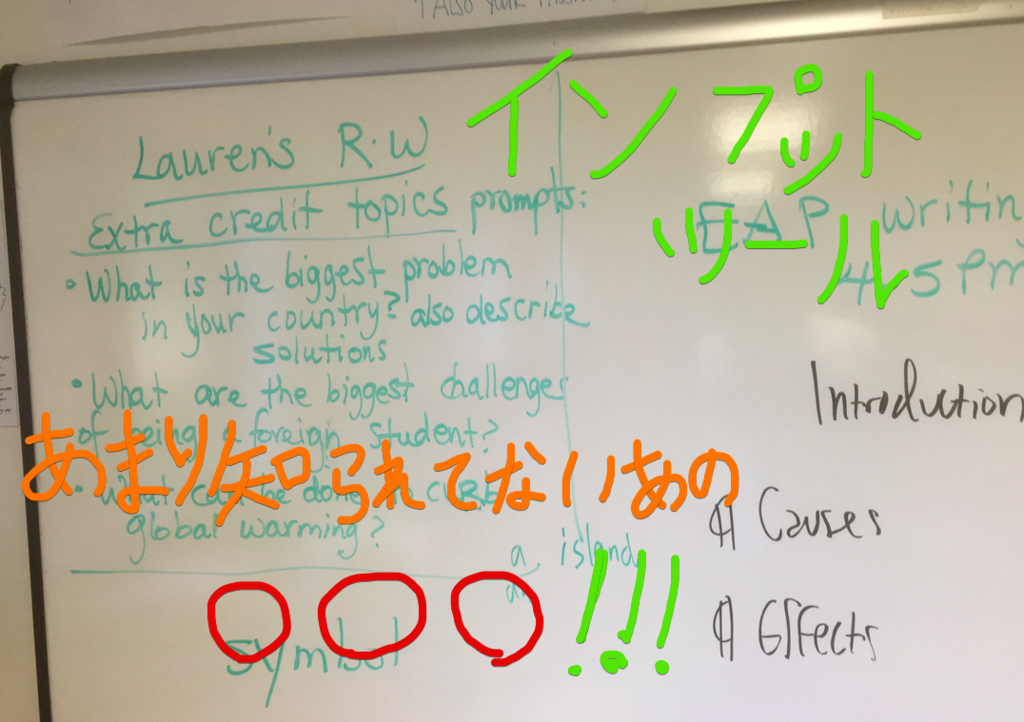 Also your
Lauren's R.W
Extra credit topics prompts:
• What is the biggest problem
in your country? also describe
solutions
• What are the biggest challenges
of being a foreign student?
• What can be done to curb
global warming?
a island
an
symbol
EAP writin
4-5 pm
Introduction
# Causes
# Effects
インプット
ツール
あまり知られてないあの
○○○!!!